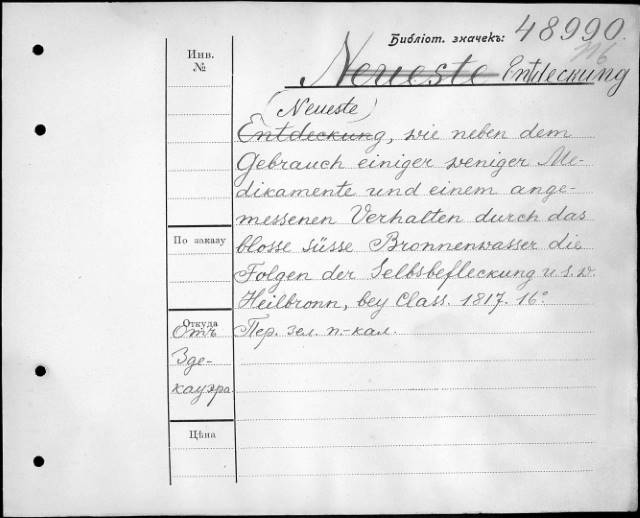 Библіот. значекъ: 48990.
Инв.
№
Neueste Entdeckung
(Neueste)
Entdeckung, wie neben dem
Gebrauch einiger weniger Me-
dikamente und einem ange-
messenen Verhalten durch das
По заказу
blosse süsse Bronnenwasser die
Folgen der Selbsbefleckung u. s. w.
Heilbronn, bey Class. 1817. 16°
Откуда
Отъ
Зде-
кауэра.
Пер. зел. п.-кал.
Цѣна